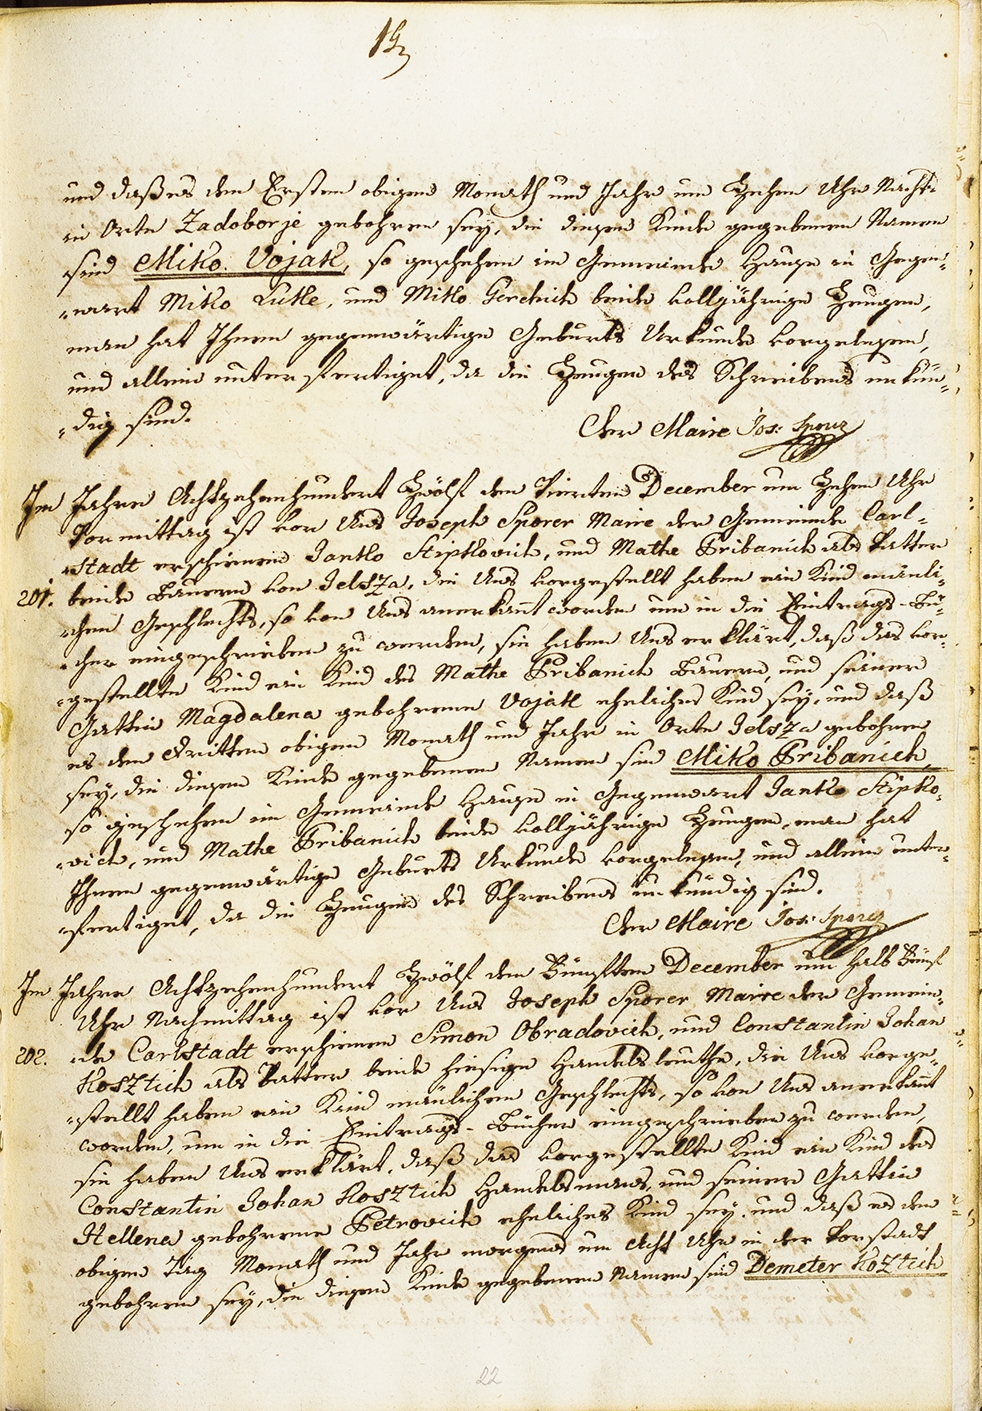 und daß es den Ersten obigen Monath und Jahr um Zehen Uhr Nachts
in Orte Zadoborje gebohren sey, die diesem Kinde gegebenen Namen
sind Miko Vojak, so geschehen im Gemeinde Hause in Gegen-
-wart Miko Lukle, und Miko Gerchich beide volljährige Zeugen,
man hat Ihnen gegenwärtige Geburts Urkunde vorgelesen,
und allein unterfertiget, da die Zeugen des Schreibens unkün-
-dig sind.
Der Maire Jos: Sporer
Im Jahre Achtzehenhundert Zwölf den Vierten December um Zehen Uhr
Vormittag ist vor Uns Joseph Sporer Maire der Gemeinde Carl-
-stadt erschienen Janko Stipkovich, und Mathe Pribanich als Vatter
201. beide Bauern von Jelsza, die Uns vorgestellt haben ein Kind mänli-
-chen Geschlechts, so von Uns anerkant worden um in die Eintrags-Bü-
-cher eingeschrieben zu werden, sie haben Uns erklärt, daß das vor-
-gestellte Kind ein Kind des Mathe Pribanich Bauern, und seiner
Gattin Magdalena gebohrene Vojak eheliches Kind sey, und daß
es den Dritten obigen Monath und Jahr in Orte Jelsza gebohren
sey, die diesem Kinde gegebenen Namen sind Miko Pribanich,
so geschehen im Gemeinde Hause in Gegenwart Janko Stipko-
-vich, und Mathe Pribanich beide volljährige Zeugen, man hat
Ihnen gegenwärtige Geburts Urkunde vorgelesen, und allein unter-
-fertiget, da die Zeugen des Schreibens unkündig sind.
Der Maire Jos: Sporer
Im Jahre Achtzehenhundert Zwölf den Fünften December um halb Fünf
Uhr Nachmittag ist vor Uns Joseph Sporer Maire der Gemein-
202. de Carlstadt erschienen Simon Obradovich, und Constantin Johan
Kosztich als Vatter beide hiesige Handelsleuthe, die Uns vorge-
-stellt haben ein Kind mänlichen Geschlechts, so von Uns anerkant
worden, um in die Eintrags-Bücher eingeschrieben zu werden,
sie haben Uns erklärt, daß das vorgestellte Kind ein Kind des
Constantin Johan Kosztich Handelsmans, und seiner Gattin
Hellena gebohrene Petrovich eheliches Kind sey, und daß es den
obigen Tag Monath und Jahr morgens um Acht Uhr in der Vorstadt
gebohren sey, die diesem Kinde gegebenen Namen sind Demeter Kosztich
22